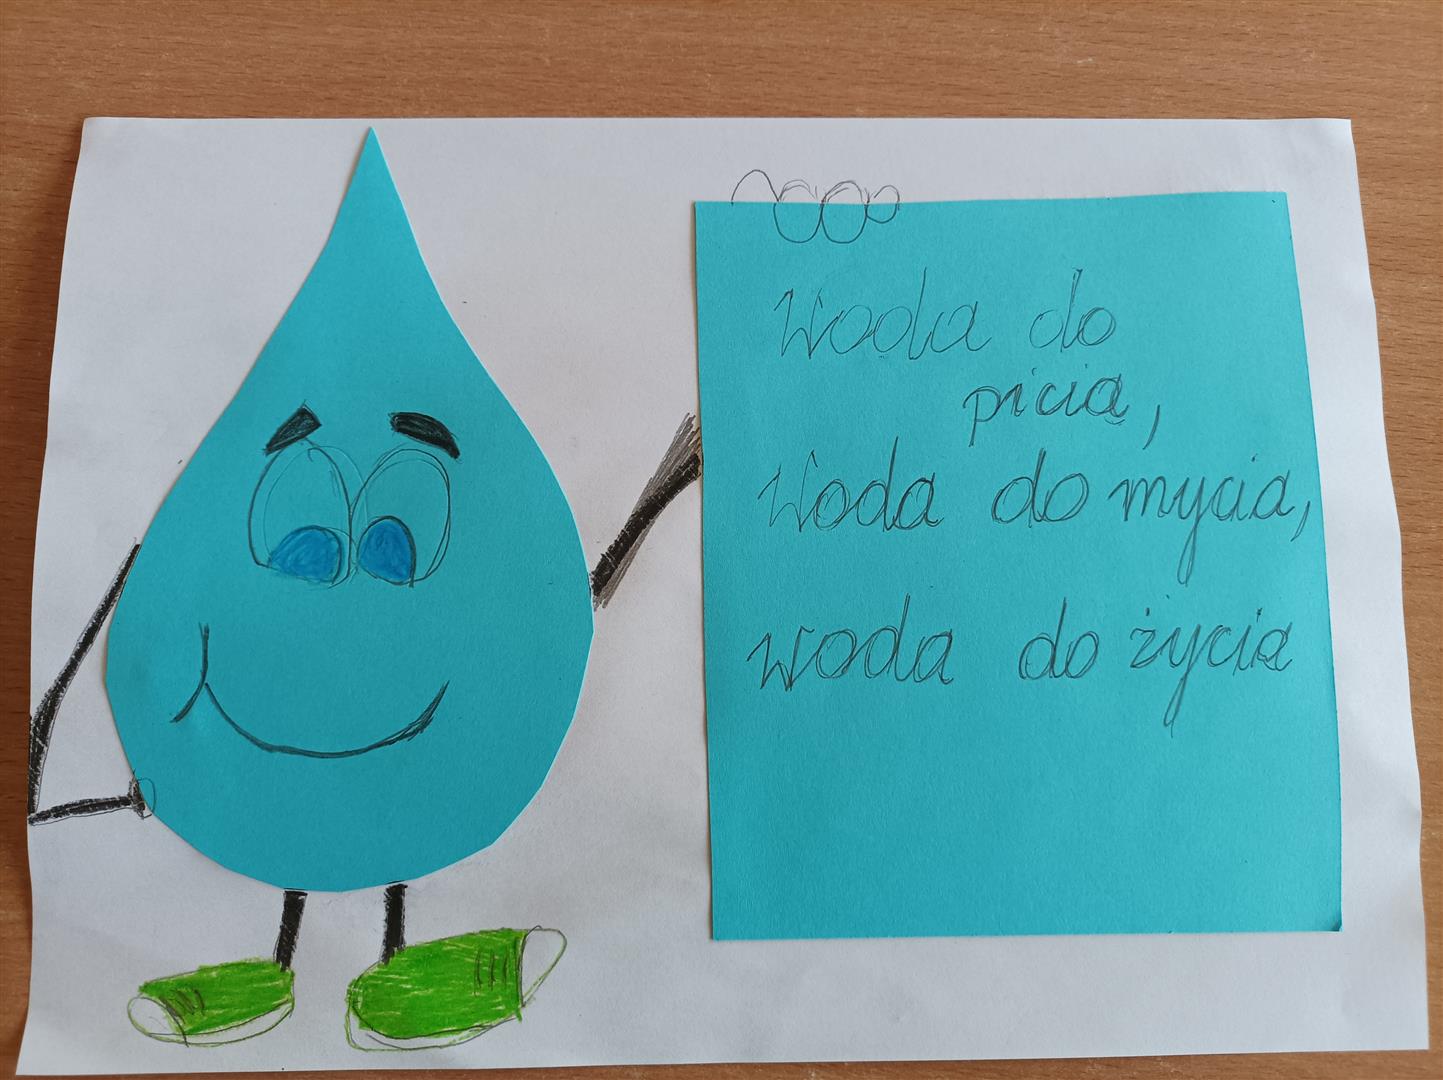 Woda do
picia,
Woda do mycia,
woda do życia